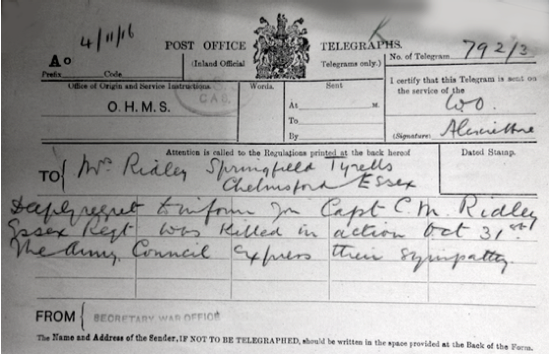 4/11/16 K
POST OFFICE TELEGRAPHS.
Ao (Inland Official Telegrams only.) No. of Telegram 792/3
Prefix Code
Office of Origin and Service Instructions Words. Sent I certify that this Telegram is sent on
the service of the
O.H.M.S. At M. WO
To
By (Signature)
Attention is called to the Regulations printed at the back hereof Dated Stamp.
TO { Mrs Ridley Springfield Tyrells
Chelmsford Essex
Deeply regret to inform you Capt C. M. Ridley
Essex Regt was killed in action Oct 31st
The Army Council express their sympathy.
FROM { SECRETARY WAR OFFICE
The Name and Address of the Sender, IF NOT TO BE TELEGRAPHED, should be written in the space provided at the Back of the Form.